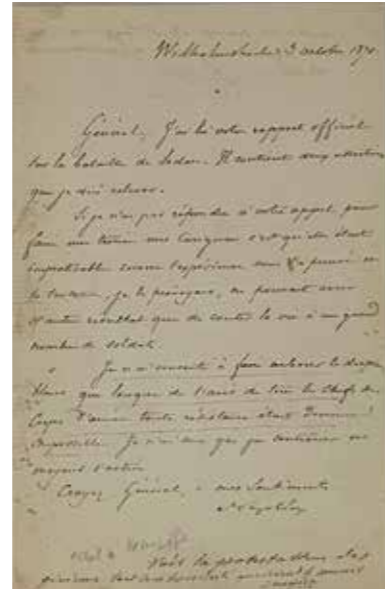 Wilhelmshöhe 3 octobre 1870
Général, J'ai lu votre rapport officiel
sur la bataille de Sedan. Il contient deux assertions
que je dois relever.
Si je n'ai pas répondu à votre appel pour
faire une trouée vers Carignan c'est qu'elle était
impraticable comme l'expérience vous l'a prouvé
je le prévoyais, ne pouvait avoir
d'autre résultat que de coûter la vie à un grand
nombre de soldats.
Je n'ai consenti à faire arborer le drapeau
blanc que lorsque de l'avis de tous les chefs de
Corps d'armée toute résistance était devenue
impossible. Je n'ai pu contrarier vos
moyens d'action
Croyez Général, à mes sentiments
Napoléon
Voir la protestation des